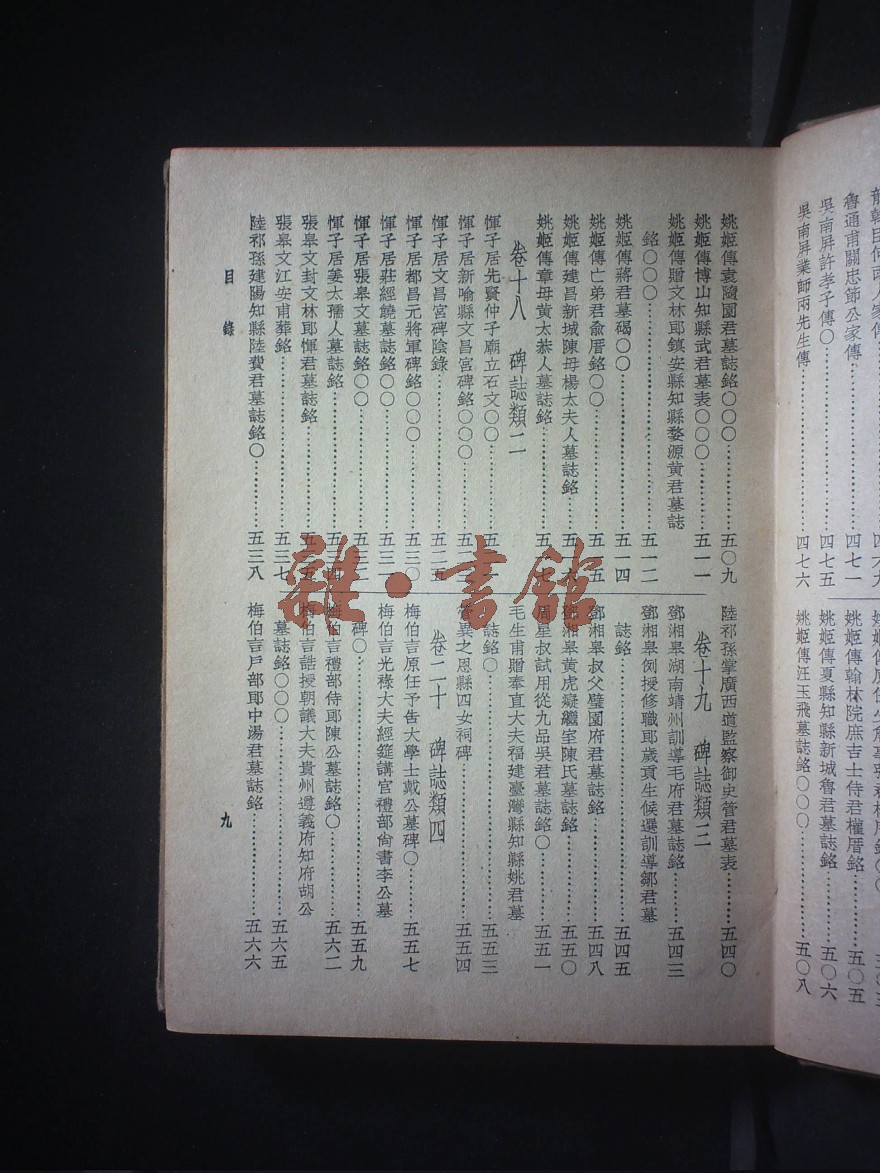 魯通甫關忠節公家傳……四七一
吳南屏許孝子傳〇……四七五
吳南屏業師兩先生傳……四七六
姚姬傳翰林院庶吉士侍君權厝銘……五〇五
姚姬傳夏縣知縣新城魯君墓誌銘……五〇六
姚姬傳汪玉飛墓誌銘〇〇〇……五〇八
姚姬傳袁隨園君墓誌銘〇〇〇……五〇九
姚姬傳博山知縣武君墓表〇〇〇……五一一
姚姬傳贈文林郎鎮安縣知縣婺源黃君墓誌
銘〇〇〇……五一二
姚姬傳蔣君墓碣〇〇……五一四
姚姬傳亡弟君俞厝銘〇〇……五一五
姚姬傳建昌新城陳母楊太夫人墓誌銘……五一
姚姬傳章母黃太恭人墓誌銘……五一七
卷十八 碑誌類二
惲子居先賢仲子廟立石文〇〇……五
惲子居新喻縣文昌宮碑銘〇〇〇……五
惲子居文昌宮碑陰錄……五二五
惲子居都昌元將軍碑銘〇〇〇……五三〇
惲子居莊經饒墓誌銘〇〇……五三一
惲子居張皋文墓誌銘〇〇……五三二
惲子居姜太孺人墓誌銘……五三四
張皋文封文林郎惲君墓誌銘……五三五
張皋文江安甫葬銘……五三七
陸祁孫建陽知縣陸費君墓誌銘〇……五三八
陸祁孫掌廣西道監察御史管君墓表……五四〇
卷十九 碑誌類三
鄧湘皋湖南靖州訓導毛府君墓誌銘……五四三
鄧湘皋例授修職郎歲貢生候選訓導鄒君墓
誌銘……五四五
鄧湘皋叔父璧園府君墓誌銘……五四八
鄧湘皋黃虎癡繼室陳氏墓誌銘……五五〇
周星叔試用從九品吳君墓誌銘〇……五五一
毛生甫贈奉直大夫福建臺灣縣知縣姚君墓
誌銘〇……五五三
管異之恩縣四女祠碑……五五四
卷二十 碑誌類四
梅伯言原任予告大學士戴公墓碑〇……五五七
梅伯言光祿大夫經筵講官禮部尙書李公墓
碑〇……五五九
梅伯言禮部侍郎陳公墓誌銘〇……五六二
梅伯言誥授朝議大夫貴州遵義府知府胡公
墓誌銘〇〇〇……五六五
梅伯言戶部郎中湯君墓誌銘……五六六
目錄
九
雜·書館